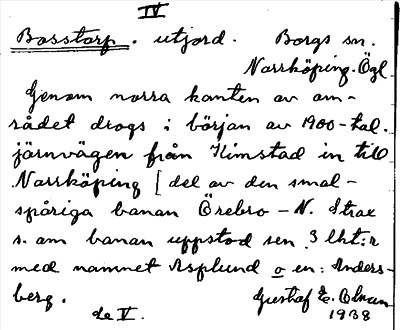 IV
Bosstorp. utjord. Borgs sn.
Norrköping. Ögl.
Genom norra kanten av om-
rådet drogs i början av 1900-tal.
järnvägen från Kimstad in till
Norrköping [del av den smal-
spåriga banan Örebro - N. Strax
s. om banan uppstod sen 3 lht:r
med namnet Asplund o en: Anders-
berg. Gustaf E.
de V. 1938